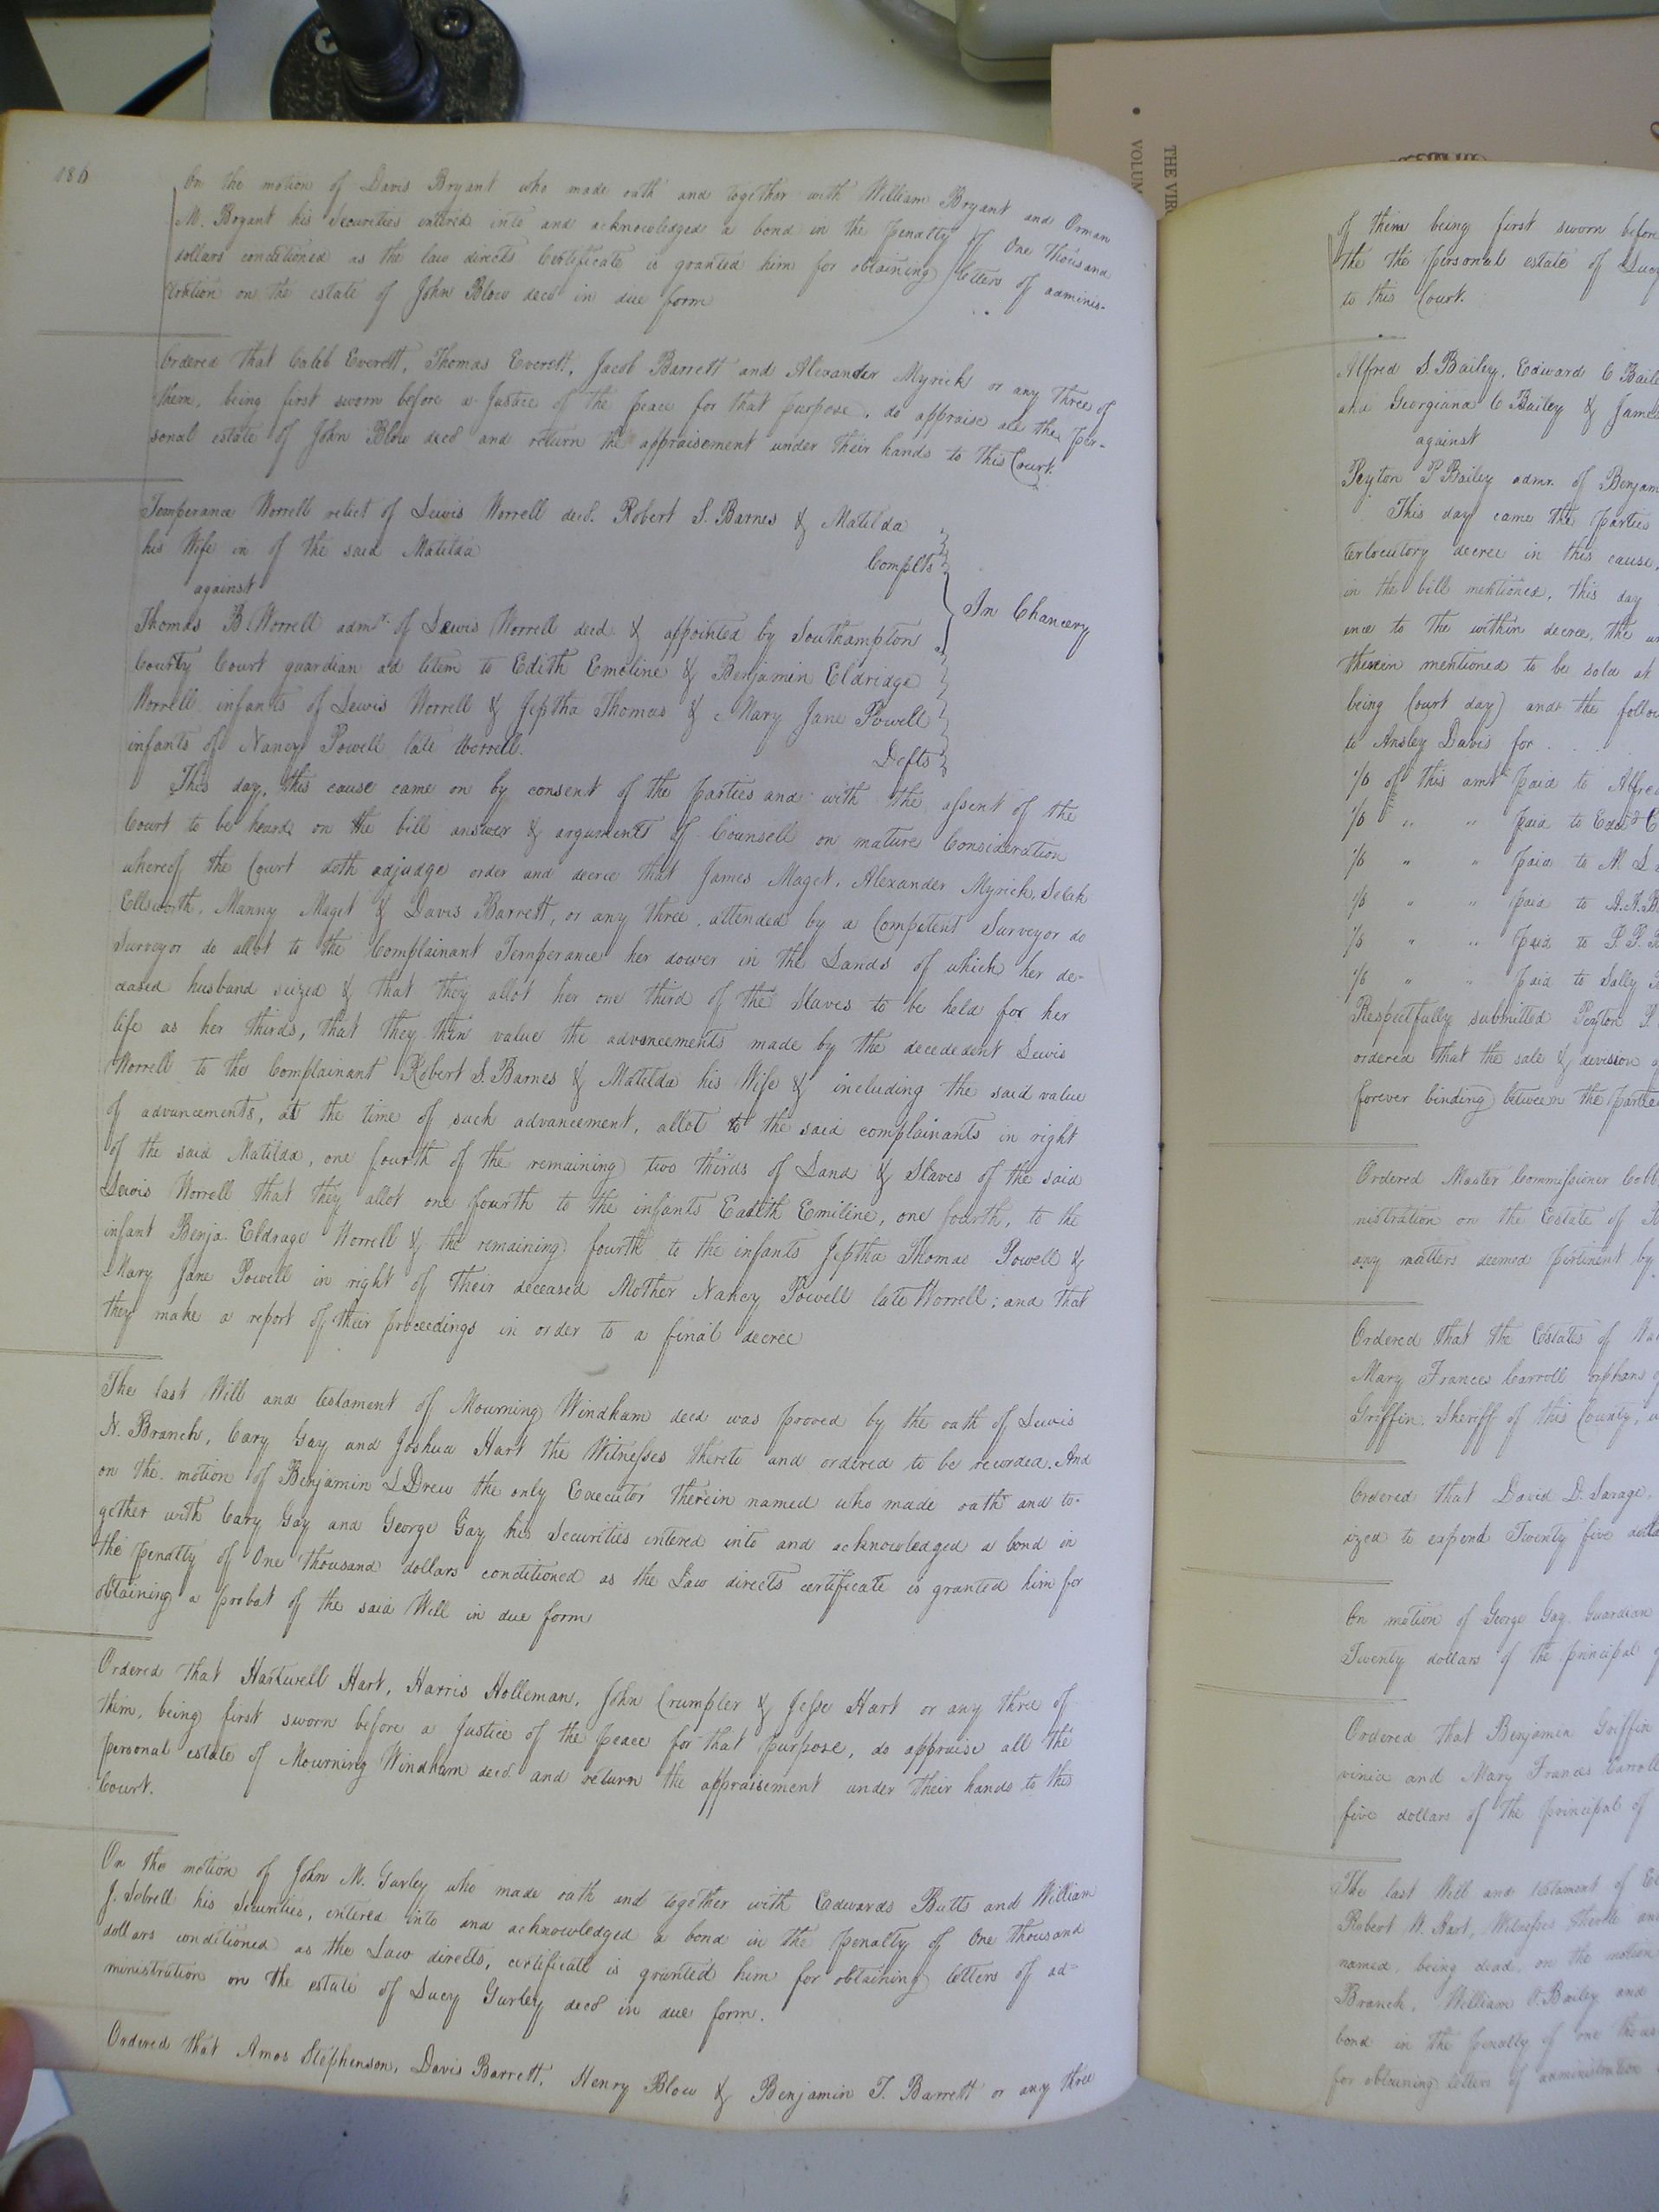 186
On the motion of Davis Bryant who made oath and together with William Bryant and Orman
M. Bryant his Securities entered into and acknowledged a bond in the penalty of One thousand
dollars conditioned as the law directs Certificate is granted him for obtaining letters of adminis-
tration on the estate of John Blow decd in due form
Ordered that Caleb Everett, Thomas Everett, Jacob Barrett and Alexander Myrick or any three of
them, being first sworn before a Justice of the peace for that purpose, do appraise all the per-
sonal estate of John Blow decd and return the appraisement under their hands to this Court.
Temperance Worrell relict of Lewis Worrell decd. Robert S. Barnes & Matilda
his Wife in of the said Matilda
Complts
against
In Chancery
Thomas B. Worrell admr. of Lewis Worrell decd & appointed by Southampton
County Court guardian ad litem to Edith Emeline & Benjamin Eldridge
Worrell infants of Lewis Worrell & Jeptha Thomas & Mary Jane Powell
infants of Nancy Powell late Worrell.
Defts
This day, this cause came on by consent of the parties and with the assent of the
Court to be heard on the bill answer & arguments of Counsell on mature Consideration
whereof the Court doth adjudge order and decree that James Maget, Alexander Myrick,
Ellsworth, Manny Maget & Davis Barrett, or any three, attended by a Competent Surveyor do
Surveyor do allot to the Complainant Temperance her dower in the Lands of which her de-
ceased husband seized & that they allot her one third of the Slaves to be held for her
life as her thirds, that they then value the advancements made by the decededent Lewis
Worrell to the Complainant Robert S. Barnes & Matilda his Wife & including the said value
of advancements, at the time of such advancement, allot to the said complainants in right
of the said Matilda, one fourth of the remaining two thirds of Land & Slaves of the said
Lewis Worrell that they allot one fourth to the infants Eadith Emiline, one fourth, to the
infant Benja. Eldrage Worrell & the remaining fourth to the infants Jeptha Thomas Powell &
Mary Jane Powell in right of their deceased Mother Nancy Powell late Worrell; and that
they make a report of their proceedings in order to a final decree
The last Will and testament of Mourning Windham decd was proved by the oath of Lewis
N. Branch, Cary Gay and Joshua Hart the Witnesses thereto and ordered to be recorded. And
on the motion of Benjamin L Drew the only Executor therein named who made oath and to-
gether with Cary Gay and George Gay his Securities entered into and acknowledged a bond in
the penalty of One thousand dollars conditioned as the Law directs certificate is granted him for
obtaining a probat of the said Will in due form
Ordered that Hartwell Hart, Harris Holleman, John Crumpler & Jesse Hart or any three of
them, being first sworn before a Justice of the peace for that purpose, do appraise all the
personal estate of Mourning Windham decd and return the appraisement under their hands to this
Court.
On the motion of John M. Gurley who made oath and together with Edwards Butts and William
J. Sebrell his Securities, entered into and acknowledged a bond in the penalty of One thousand
dollars conditioned as the Law directs, certificate is granted him for obtaining letters of ad-
ministration on the estate of Lucy Gurley decd in due form.
Ordered that Amos Stephenson, Davis Barrett, Henry Blow & Benjamin T. Barrett or any three
THE VIR
VOLUM
of them being first sworn before
the the personal estate of Lucy
to this Court.
Alfred S. Bailey, Edward C Baile
and Georgiana C Bailey & James
against
Peyton P Bailey admr. of Benjam
This day came the parties
terlocutory decree in this cause,
in the bill mentioned, this day
ence to the within decree, the
therein mentioned to be sold at
being Court day) and the follow
to Ansley Davis for
1/6 of this amt paid to Alfred
1/6 " " paid to Edwd C
1/6 " " paid to M L
1/6 " " paid to
1/6 " " paid to P. P. B
1/6 " " paid to Sally
Respectfully submitted Peyton P.
ordered that the sale & division
forever binding between the partie
Ordered Master Commissioner Cobb
nistration on the Estate of
any matters deemed pertinent by
Ordered that the Estates of
Mary Frances Carroll orphans of
Griffin Sheriff of this County,
Ordered that David D. Savage,
ized to expend Twenty five dolla
On motion of George Gay Guardian
Twenty dollars of the principal of
Ordered that Benjamin Griffin
vinia and Mary Frances Carroll
five dollars of the principal of
The last Will and testament of
Robert W. Hart, Witnesses thereto and
named, being dead, on the motion
Branch, William J. Bailey and
bond in the penalty of one thous
for obtaining letters of administration